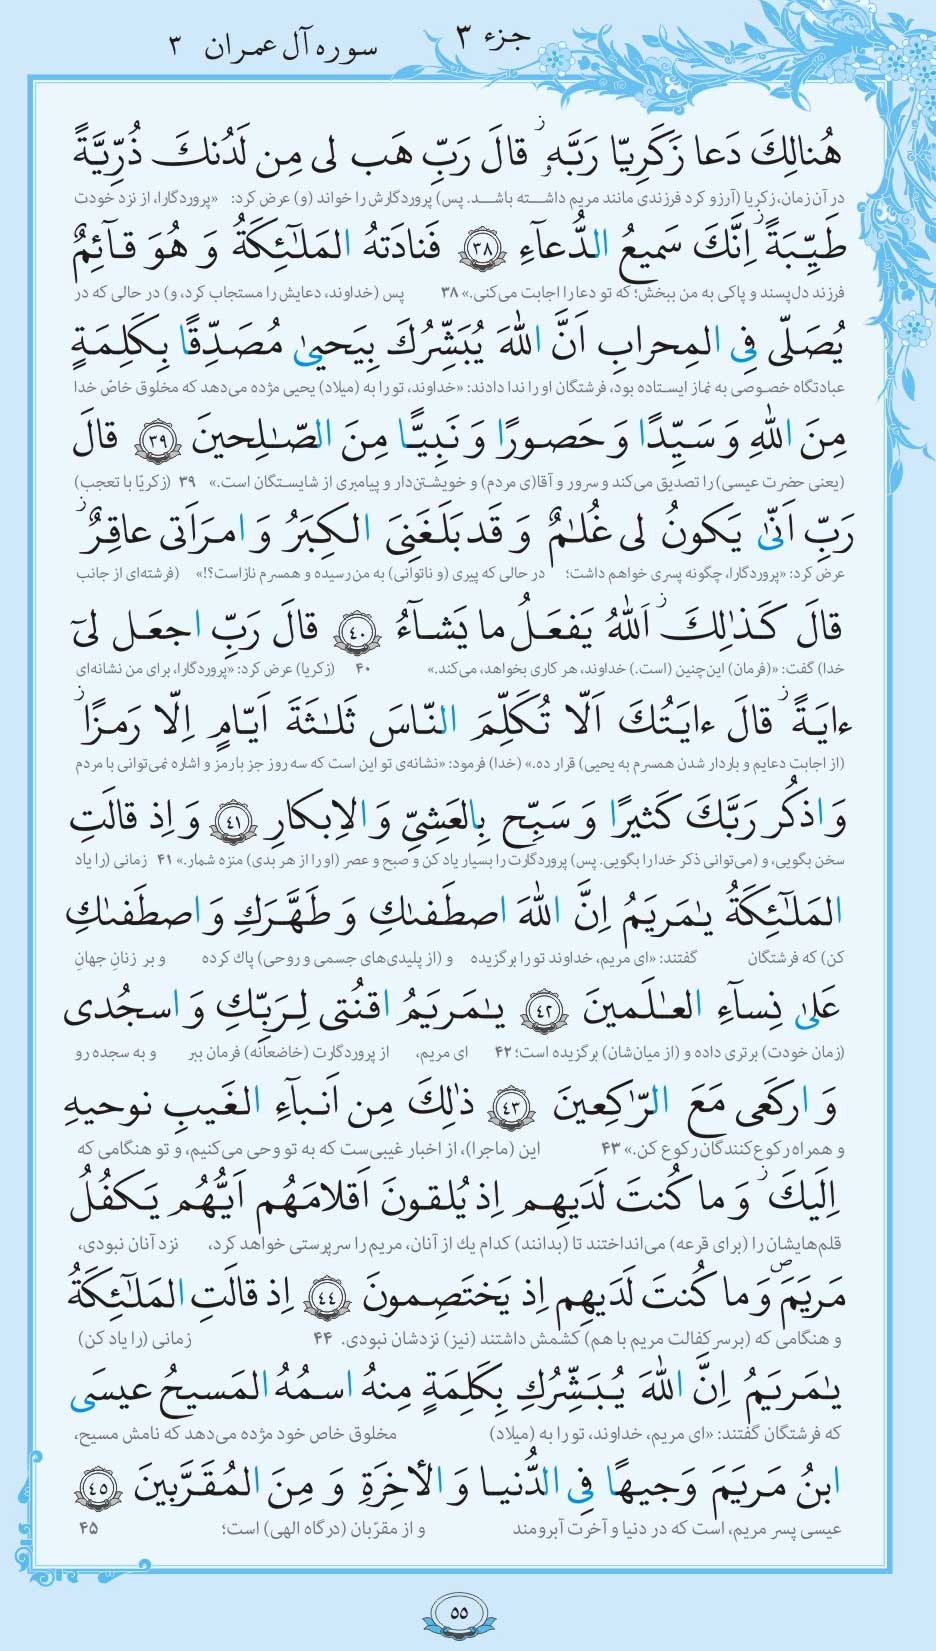 جزء ۳
سوره آل عمران ۳
هُنالِكَ دَعا زَكَرِيّا رَبَّهٗ ۖ قالَ رَبِّ هَب لى مِن لَدُنكَ ذُرِّيَّةً
در آن زمان، زکریا (آرزو کرد فرزندی مانند مریم داشته باشد. پس) پروردگارش را خواند (و) عرض کرد: «پروردگارا، از نزد خودت
طَيِّبَةً ۖ اِنَّكَ سَميعُ الدُّعآءِ ﴿۳۸﴾ فَنادَتهُ المَلٰٓئِكَةُ وَ هُوَ قآئِمٌ
فرزند دل‌پسند و پاکی به من ببخش؛ که تو دعا را اجابت می‌کنی.» ۳۸ پس (خداوند، دعایش را مستجاب کرد، و) در حالی که در
يُصَلّى فِى المِحرابِ اَنَّ اللّٰهَ يُبَشِّرُكَ بِيَحيىٰ مُصَدِّقًا بِكَلِمَةٍ
عبادتگاه خصوصی به نماز ایستاده بود، فرشتگان او را ندا دادند: «خداوند، تو را به (میلاد) یحیی مژده می‌دهد که مخلوق خاصّ خدا
مِنَ اللّٰهِ وَ سَيِّدًا وَ حَصورًا وَ نَبِيًّا مِنَ الصّٰلِحينَ ﴿۳۹﴾ قالَ
(یعنی حضرت عیسی) را تصدیق می‌کند و سرور و آقا(ی مردم) و خویشتن‌دار و پیامبری از شایستگان است.» ۳۹ (زکریّا با تعجب)
رَبِّ اَنّىٰ يَكونُ لى غُلٰمٌ وَ قَد بَلَغَنِىَ الكِبَرُ وَ امرَاَتى عاقِرٌ ۖ
عرض کرد: «پروردگارا، چگونه پسری خواهم داشت؛ در حالی که پیری (و ناتوانی) به من رسیده و همسرم نازاست؟!» (فرشته‌ای از جانب
قالَ كَذٰلِكَ ۖ اَللّٰهُ يَفعَلُ ما يَشآءُ ﴿۴۰﴾ قالَ رَبِّ اجعَل لىٓ
خدا) گفت: «(فرمان) این‌چنین (است.) خداوند، هر کاری بخواهد، می‌کند.» ۴۰ (زکریا) عرض کرد: «پروردگارا، برای من نشانه‌ای
ءايَةً ۖ قالَ ءايَتُكَ اَلّا تُكَلِّمَ النّاسَ ثَلٰثَةَ اَيّامٍ اِلّا رَمزًا ۖ
(از اجابت دعایم و باردار شدن همسرم به یحیی) قرار ده.» (خدا) فرمود: «نشانه‌ی تو این است که سه روز جز با رمز و اشاره نمی‌توانی با مردم
وَ اذكُر رَبَّكَ كَثيرًا وَ سَبِّح بِالعَشِىِّ وَ الاِبكارِ ﴿۴۱﴾ وَ اِذ قالَتِ
سخن بگویی، و (می‌توانی ذکر خدا را بگویی. پس) پروردگارت را بسیار یاد کن و صبح و عصر (او را از هر بدی) منزه شمار.» ۴۱ زمانی (را یاد
المَلٰٓئِكَةُ يٰمَريَمُ اِنَّ اللّٰهَ اصطَفىٰكِ وَ طَهَّرَكِ وَ اصطَفىٰكِ
کن) که فرشتگان گفتند: «ای مریم، خداوند تو را برگزیده و (از پلیدی‌های جسمی و روحی) پاک کرده و بر زنانِ جهانِ
عَلىٰ نِسآءِ العٰلَمينَ ﴿۴۲﴾ يٰمَريَمُ اقنُتى لِرَبِّكِ وَ اسجُدى
(زمان خودت) برتری داده و (از میان‌شان) برگزیده است؛ ۴۲ ای مریم، از پروردگارت (خاضعانه) فرمان ببر و به سجده رو
وَ اركَعى مَعَ الرّٰكِعينَ ﴿۴۳﴾ ذٰلِكَ مِن اَنبآءِ الغَيبِ نوحيهِ
و همراه رکوع‌کنندگان رکوع کن.» ۴۳ این (ماجرا)، از اخبار غیبی‌ست که به تو وحی می‌کنیم، و تو هنگامی که
اِلَيكَ ۖ وَ ما كُنتَ لَدَيهِم اِذ يُلقونَ اَقلامَهُم اَيُّهُم يَكفُلُ
قلم‌هایشان را (برای قرعه) می‌انداختند تا (بدانند) کدام یك از آنان، مریم را سرپرستی خواهد کرد، نزد آنان نبودی،
مَريَمَ ۖ وَ ما كُنتَ لَدَيهِم اِذ يَختَصِمونَ ﴿۴۴﴾ اِذ قالَتِ المَلٰٓئِكَةُ
و هنگامی که (بر سر کفالت مریم با هم) کشمش داشتند (نیز) نزدشان نبودی. ۴۴ زمانی (را یاد کن)
يٰمَريَمُ اِنَّ اللّٰهَ يُبَشِّرُكِ بِكَلِمَةٍ مِنهُ اسمُهُ المَسيحُ عيسَى
که فرشتگان گفتند: «ای مریم، خداوند، تو را به (میلاد) مخلوق خاص خود مژده می‌دهد که نامش مسیح،
ابنُ مَريَمَ وَجيهًا فِى الدُّنيا وَ الأخِرَةِ وَ مِنَ المُقَرَّبينَ ﴿۴۵﴾
عیسی پسر مریم، است که در دنیا و آخرت آبرومند و از مقرّبان (درگاه الهی) است؛ ۴۵
۵۵